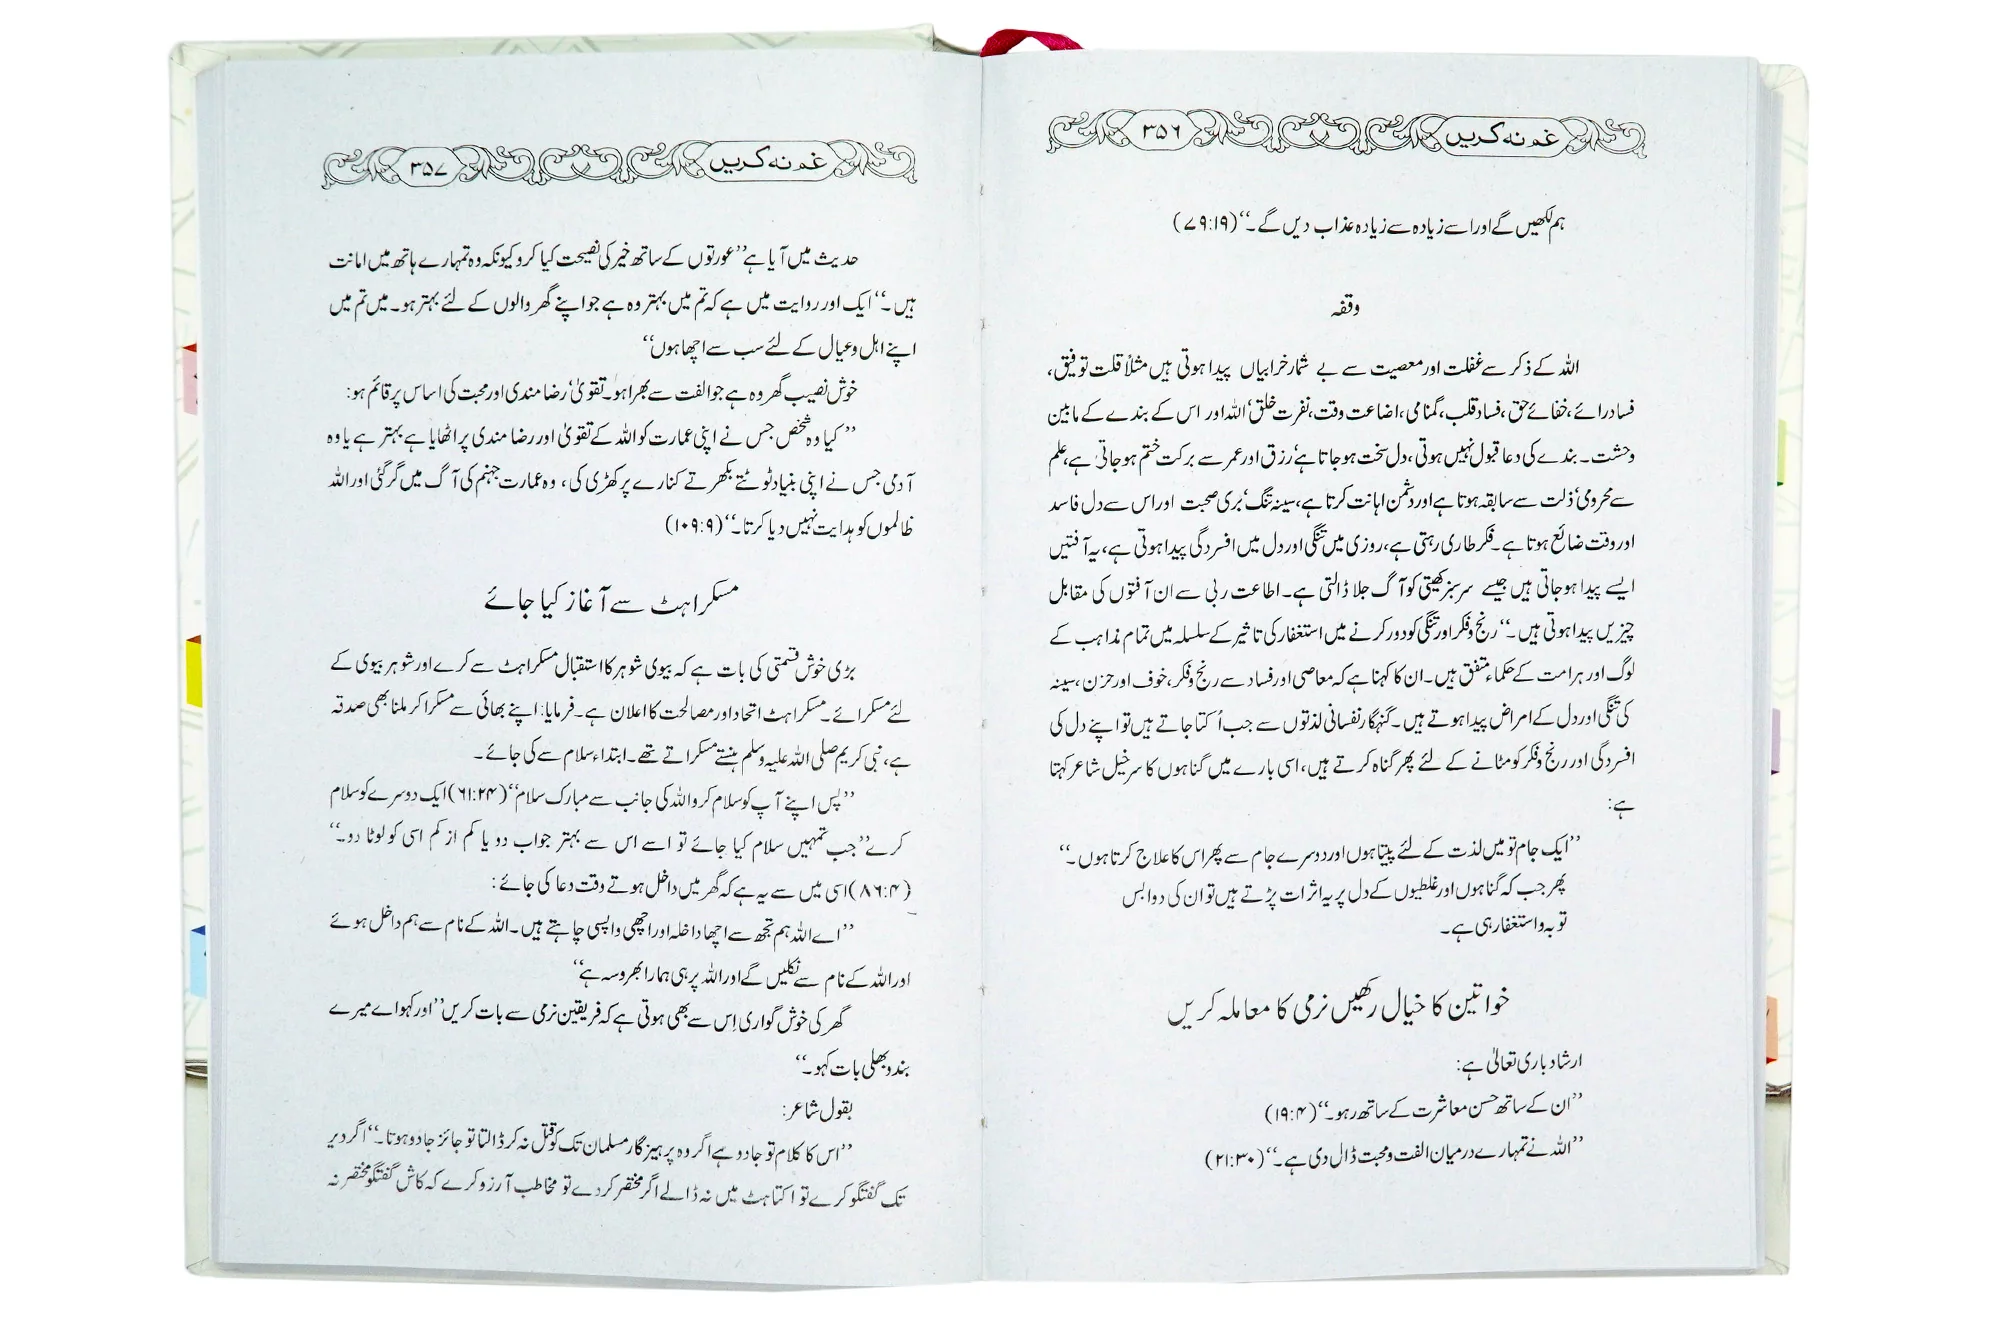 غم نہ کریں ۳۵۶
ہم لکھیں گے اور اسے زیادہ سے زیادہ عذاب دیں گے۔‘‘ (۷۹:۱۹)
وقفہ
اللہ کے ذکر سے غفلت اور معصیت سے بے شمار خرابیاں پیدا ہوتی ہیں مثلاً قلت توفیق،
فساد رائے، خفائے حق، فساد قلب، گمنامی، اضاعت وقت، نفرت خلق‘ اللہ اور اس کے بندے کے مابین
وحشت۔ بندے کی دعا قبول نہیں ہوتی، دل سخت ہو جاتا ہے‘ رزق اور عمر سے برکت ختم ہو جاتی ہے، علم
سے محرومی‘ ذلت سے سابقہ ہوتا ہے اور دشمن اہانت کرتا ہے، سینہ تنگ‘ بری صحبت اور اس سے دل فاسد
اور وقت ضائع ہوتا ہے۔ فکر طاری رہتی ہے، روزی میں تنگی اور دل میں افسردگی پیدا ہوتی ہے، یہ آفتیں
ایسے پیدا ہو جاتی ہیں جیسے سرسبز کھیتی کو آگ جلا ڈالتی ہے۔ اطاعت ربی سے ان آفتوں کی مقابل
چیزیں پیدا ہوتی ہیں۔‘‘ رنج و فکر اور تنگی کو دور کرنے میں استغفار کی تاثیر کے سلسلہ میں تمام مذاہب کے
لوگ اور ہر امت کے حکماء متفق ہیں۔ ان کا کہنا ہے کہ معاصی اور فساد سے رنج و فکر، خوف اور حزن، سینہ
کی تنگی اور دل کے امراض پیدا ہوتے ہیں۔ گنہگار نفسانی لذتوں سے جب اُکتا جاتے ہیں تو اپنے دل کی
افسردگی اور رنج و فکر کو مٹانے کے لئے پھر گناہ کرتے ہیں، اسی بارے میں گناہوں کا سرخیل شاعر کہتا
ہے:
’’ایک جام تو میں لذت کے لئے پیتا ہوں اور دوسرے جام سے پھر اس کا علاج کرتا ہوں۔‘‘
پھر جب کہ گناہوں اور غلطیوں کے دل پر یہ اثرات پڑتے ہیں تو ان کی دوا بس
توبہ و استغفار ہی ہے۔
خواتین کا خیال رکھیں نرمی کا معاملہ کریں
ارشاد باری تعالیٰ ہے:
’’ان کے ساتھ حسن معاشرت کے ساتھ رہو۔‘‘ (۱۹:۴)
’’اللہ نے تمہارے درمیان الفت و محبت ڈال دی ہے۔‘‘ (۲۱:۳۰)
غم نہ کریں ۳۵۷
حدیث میں آیا ہے’’ عورتوں کے ساتھ خیر کی نصیحت کیا کرو کیونکہ وہ تمہارے ہاتھ میں امانت
ہیں۔‘‘ ایک اور روایت میں ہے کہ تم میں بہتر وہ ہے جو اپنے گھر والوں کے لئے بہتر ہو۔ میں تم میں
اپنے اہل و عیال کے لئے سب سے اچھا ہوں‘‘
خوش نصیب گھر وہ ہے جو الفت سے بھرا ہو۔ تقویٰ‘ رضا مندی اور محبت کی اساس پر قائم ہو:
’’کیا وہ شخص جس نے اپنی عمارت کو اللہ کے تقویٰ اور رضا مندی پر اٹھایا ہے بہتر ہے یا وہ
آدمی جس نے اپنی بنیاد ٹوٹتے بکھرتے کنارے پر کھڑی کی، وہ عمارت جہنم کی آگ میں گر گئی اور اللہ
ظالموں کو ہدایت نہیں دیا کرتا۔‘‘ (۱۰۹:۹)
مسکراہٹ سے آغاز کیا جائے
بڑی خوش قسمتی کی بات ہے کہ بیوی شوہر کا استقبال مسکراہٹ سے کرے اور شوہر بیوی کے
لئے مسکرائے۔ مسکراہٹ اتحاد اور مصالحت کا اعلان ہے۔ فرمایا: اپنے بھائی سے مسکرا کر ملنا بھی صدقہ
ہے، نبی کریم صلی اللہ علیہ وسلم ہنستے مسکراتے تھے۔ ابتداء سلام سے کی جائے۔
’’پس اپنے آپ کو سلام کرو اللہ کی جانب سے مبارک سلام‘‘ (۶۱:۲۴) ایک دوسرے کو سلام
کرے’’ جب تمہیں سلام کیا جائے تو اسے اس سے بہتر جواب دو یا کم از کم اسی کو لوٹا دو۔‘‘
(۸۶:۴) اسی میں سے یہ ہے کہ گھر میں داخل ہوتے وقت دعا کی جائے:
’’اے اللہ ہم تجھ سے اچھا داخلہ اور اچھی واپسی چاہتے ہیں۔ اللہ کے نام سے ہم داخل ہوئے
اور اللہ کے نام سے نکلیں گے اور اللہ پر ہی ہمارا بھروسہ ہے‘‘
گھر کی خوش گواری اِس سے بھی ہوتی ہے کہ فریقین نرمی سے بات کریں’’ اور کہو اے میرے
بندو بھلی بات کہو۔‘‘
بقول شاعر:
’’اس کا کلام تو جادو ہے اگر وہ پرہیز گار مسلمان تک کو قتل نہ کر ڈالتا تو جائز جادو ہوتا۔‘‘ اگر دیر
تک گفتگو کرے تو اکتاہٹ میں نہ ڈالے اگر مختصر کر دے تو مخاطب آرزو کرے کہ کاش گفتگو مختصر نہ